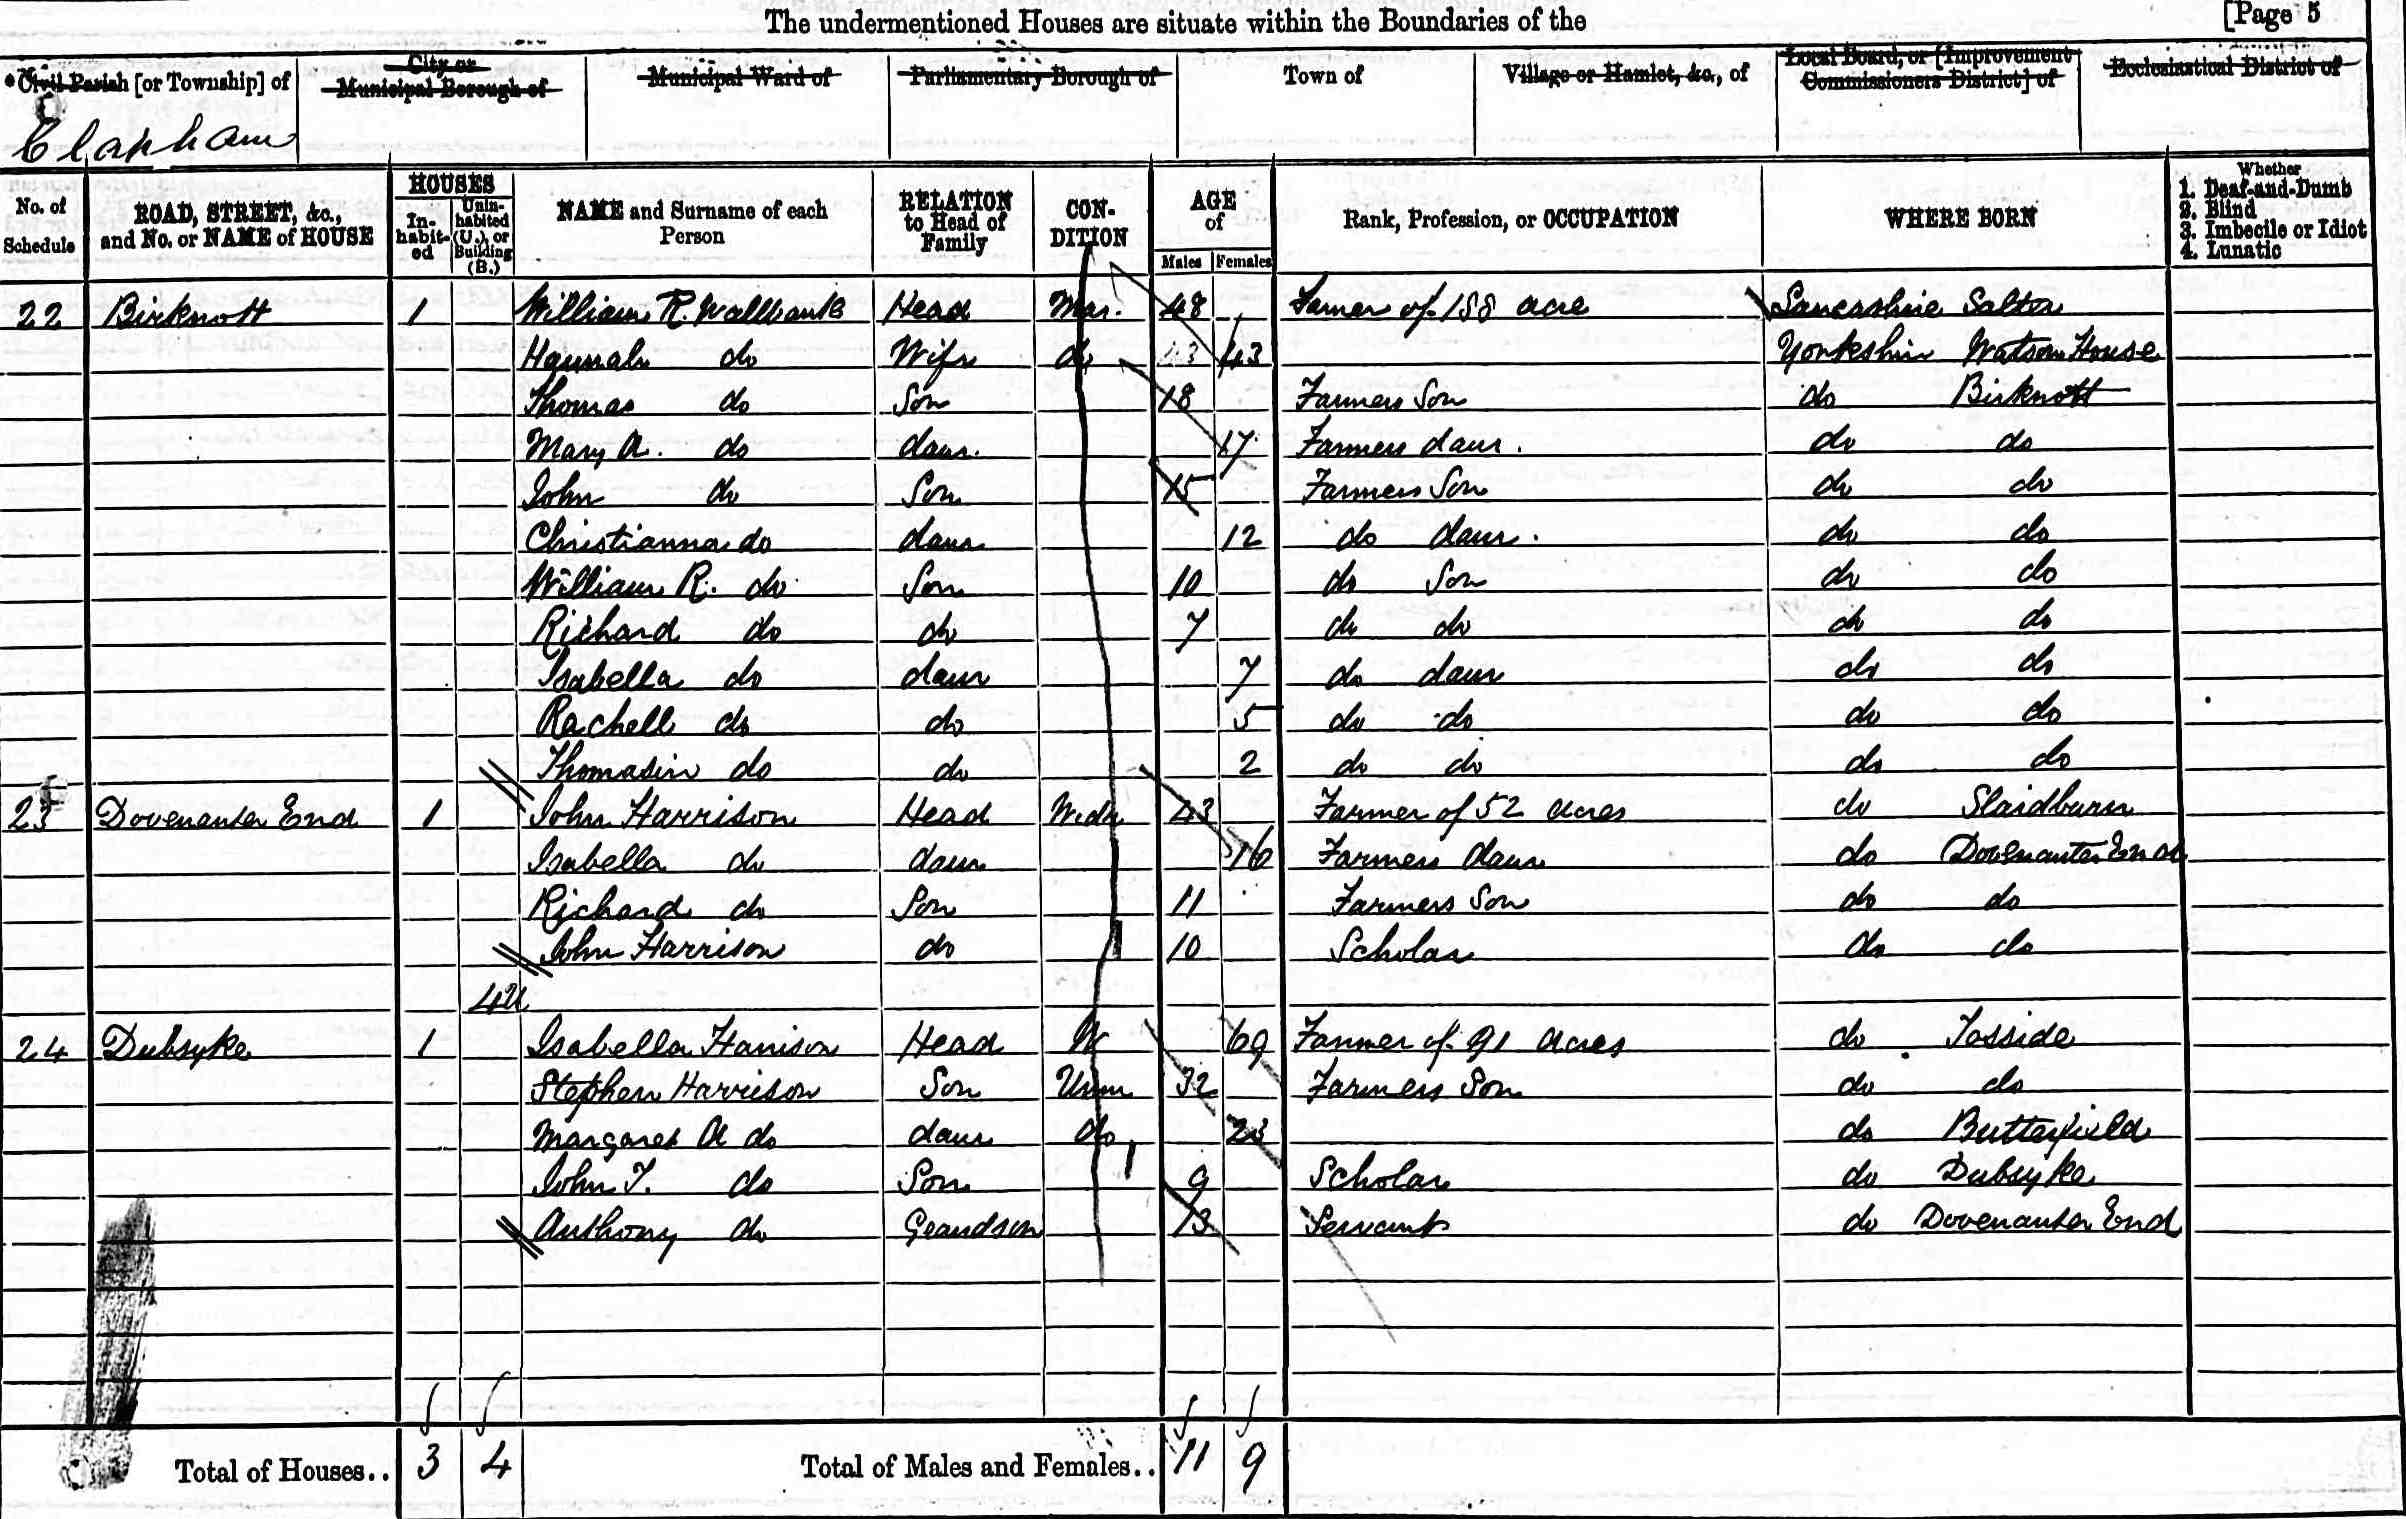 The undermentioned Houses are situate within the Boundaries of the [Page 5
Civil Parish [or Township] of City or Municipal Borough of Municipal Ward of Parliamentary Borough of Town of Village or Hamlet, &c., of Local Board, or [Improvement Commissioners District] of Ecclesiastical District of
Clapham
No. of Schedule ROAD, STREET, &c., and No. or NAME of HOUSE HOUSES In-habit-ed Unin-habited (U.), or Building (B.) NAME and Surname of each Person RELATION to Head of Family CON-DITION AGE of Males Females Rank, Profession, or OCCUPATION WHERE BORN Whether 1. Deaf-and-Dumb 2. Blind 3. Imbecile or Idiot 4. Lunatic
22 Birknott 1 William R. Wallbank Head Mar. 48 Farmer of 158 acre Lancashire Salter
Hannah do Wife do 43 Yorkshire Watson House
Thomas do Son 18 Farmers Son do Birknott
Mary A. do daur. 17 Farmers daur. do do
John do Son 15 Farmers Son do do
Christianna do daur 12 do daur. do do
William R. do Son 10 do Son do do
Richard do do 7 do do do do
Isabella do daur 7 do daur do do
Rachell do do 5 do do do do
Thomasin do do 2 do do do do
23 Dovenanter End 1 John Harrison Head Widr 43 Farmer of 52 acres do Slaidburn
Isabella do daur 16 Farmers daur do Dovenanter End
Richard do Son 11 Farmers Son do do
John Harrison do 10 Scholar do do
4U
24 Dubsyke 1 Isabella Harrison Head W 69 Farmer of 91 acres do Tosside
Stephen Harrison Son Unm 32 Farmers Son do do
Margaret A do daur do 23 do Butterfield
John T. do Son 9 Scholar do Dubsyke
Anthony do Grandson 13 Servant do Dovenanter End
Total of Houses.. 3 4 Total of Males and Females.. 11 9